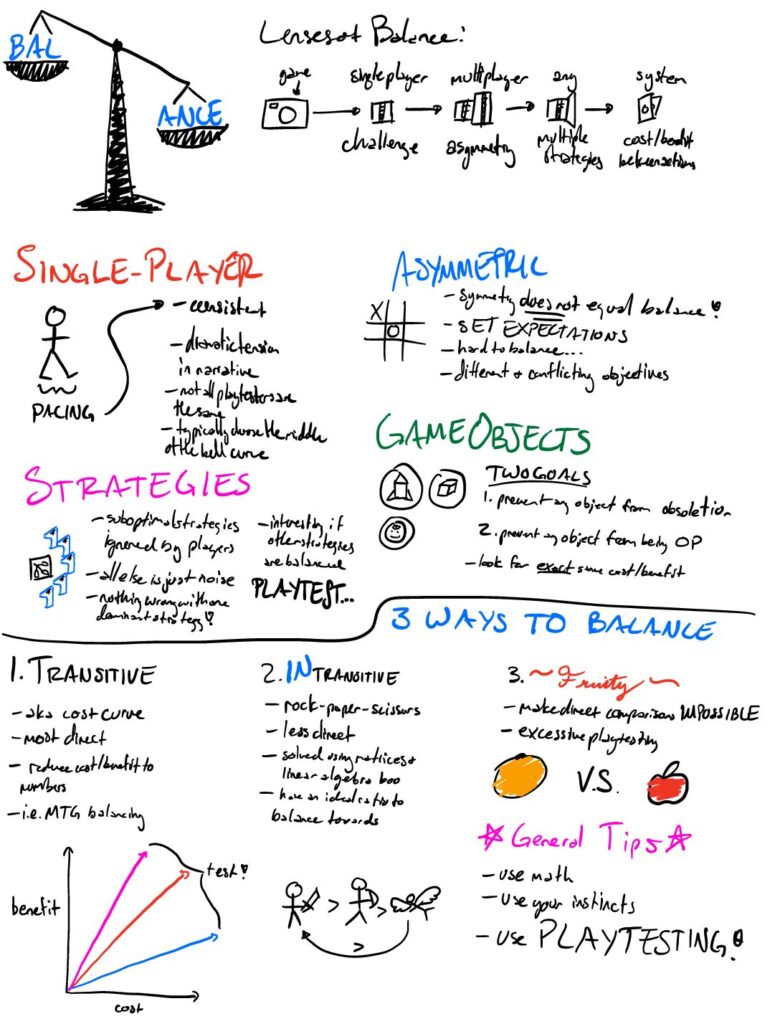 BALANCE
Lenses of Balance:
game
single player
multiplayer
any
system
challenge
asymmetry
multiple
strategies
cost/benefit
between actions
SINGLE-PLAYER
PACING
- consistent
- dramatic tension
in narrative
- not all playtesters are
the same
- typically choose the middle
of the bell curve
ASYMMETRIC
X
O
- symmetry does not equal balance!
- SET EXPECTATIONS
- hard to balance...
- different & conflicting objectives
GAME OBJECTS
TWO GOALS
1. prevent any object from obsoletion
2. prevent any object from being OP
- look for exact same cost/benefit
STRATEGIES
- suboptimal strategies
ignored by players
- all else is just noise
- nothing wrong with one
dominant strategy!
- interesting if
other strategies
are balanced
PLAYTEST...
3 WAYS TO BALANCE
1. TRANSITIVE
- aka cost curve
- most direct
- reduce cost/benefit to
numbers
- i.e. MTG balancing
benefit
test!
cost
2. INTRANSITIVE
- rock-paper-scissors
- less direct
- solved using matrices &
linear algebra boo
- have an ideal ratio to
balance towards
> >
>
3. ~ Fruity ~
- make direct comparisons IMPOSSIBLE
- excessive playtesting
V.S.
General Tips
- use math
- use your instincts
- use PLAYTESTING!